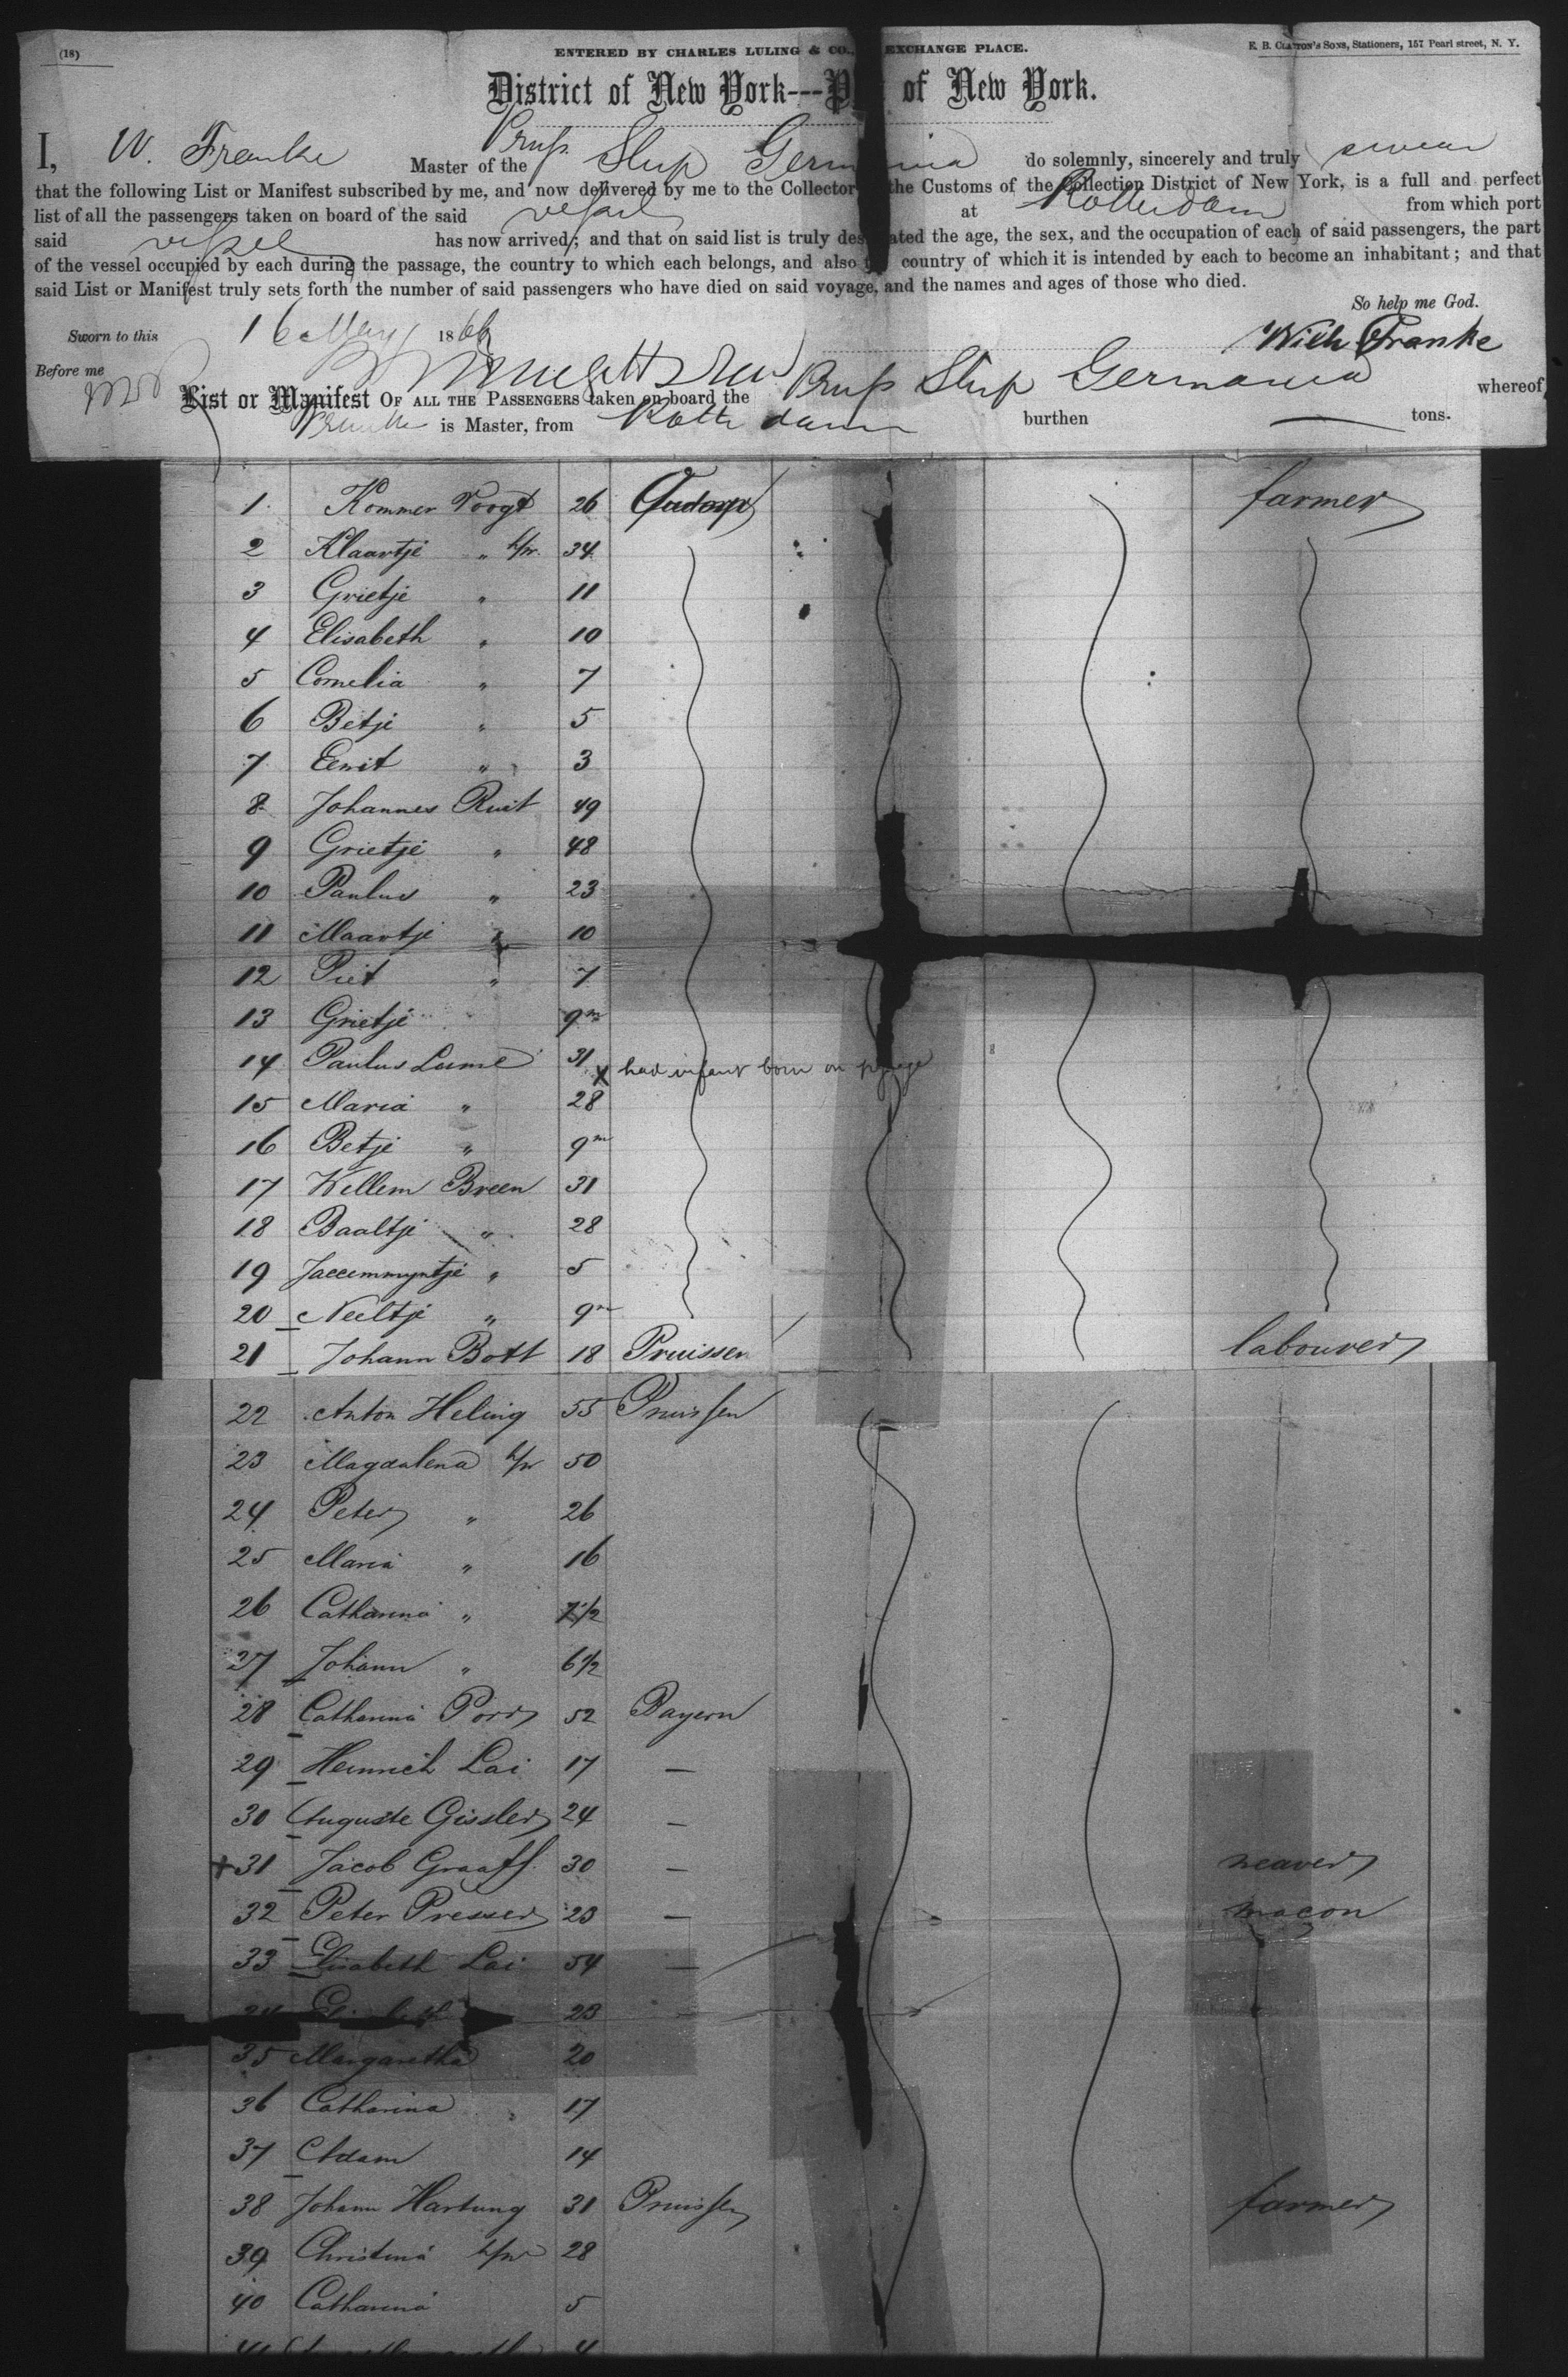 (18)
ENTERED BY CHARLES LULING & CO., EXCHANGE PLACE.
E. B. CLAYTON'S SONS, Stationers, 157 Pearl street, N. Y.
District of New York---P of New York.
I, W. Franke Master of the Pruss. Ship Germania do solemnly, sincerely and truly swear
that the following List or Manifest subscribed by me, and now delivered by me to the Collector the Customs of the Collection District of New York, is a full and perfect
list of all the passengers taken on board of the said vessel at Rotterdam from which port
said vessel has now arrived; and that on said list is truly designated the age, the sex, and the occupation of each of said passengers, the part
of the vessel occupied by each during the passage, the country to which each belongs, and also country of which it is intended by each to become an inhabitant; and that
said List or Manifest truly sets forth the number of said passengers who have died on said voyage, and the names and ages of those who died.
So help me God.
Sworn to this 16 May 1866
Wilh Franke
Before me
List or Manifest OF ALL THE PASSENGERS taken on board the Pruss Ship Germania whereof
Franke is Master, from Rotterdam burthen tons.
1 Kommer Voogt 26 farmer
2 Klaartje " 34
3 Grietje " 11
4 Elisabeth " 10
5 Cornelia " 7
6 Betje " 5
7 " 3
8 Johannes Ruit 49
9 Grietje " 48
10 Paulus " 23
11 Maartje " 10
12 Piet " 7
13 Grietje 9m
14 Paulus 31 x had infant born on
15 Maria " 28
16 Betje " 9m
17 Willem Breen 31
18 Baaltje " 28
19 " 5
20 Neeltje " 9m
21 Johann Bott 18 Pruissen labourer
22 Anton Heling 55 Pruissen
23 Magdalena 50
24 Peter " 26
25 Maria " 16
26 Catharina "
27 Johann " 6 1/2
28 Catharina 52 Bayern
29 Heinrich Lai 17 —
30 Auguste Gissler 24 —
+31 Jacob Graaff 30 — weaver
32 Peter Presser 23 — macon
33 Elisabeth Lai 54 —
23
35 Margaretha 20
36 Catharina 17
37 Adam 14
38 Johann Hartung 31 Pruissen farmer
39 Christina 28
40 Catharina 5
41 4